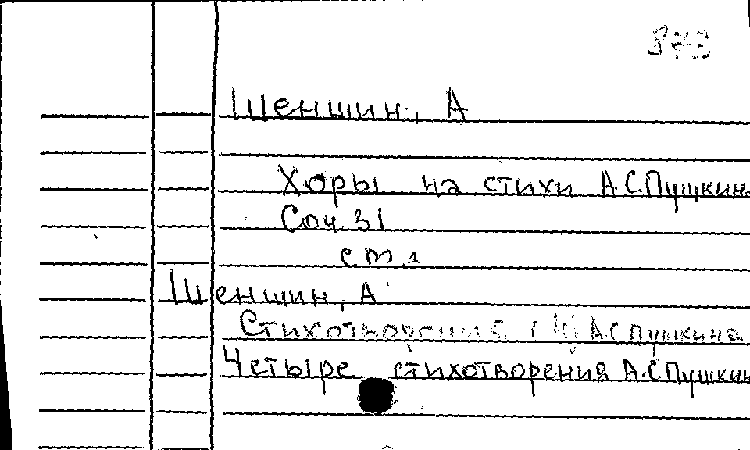 373
Шеншин, А
Хоры на стихи А.С.Пушкин
Соч. 31
см.
Шеншин, А
Стихотворения (4) А.С.Пушкина
Четыре стихотворения А.С.Пушкин